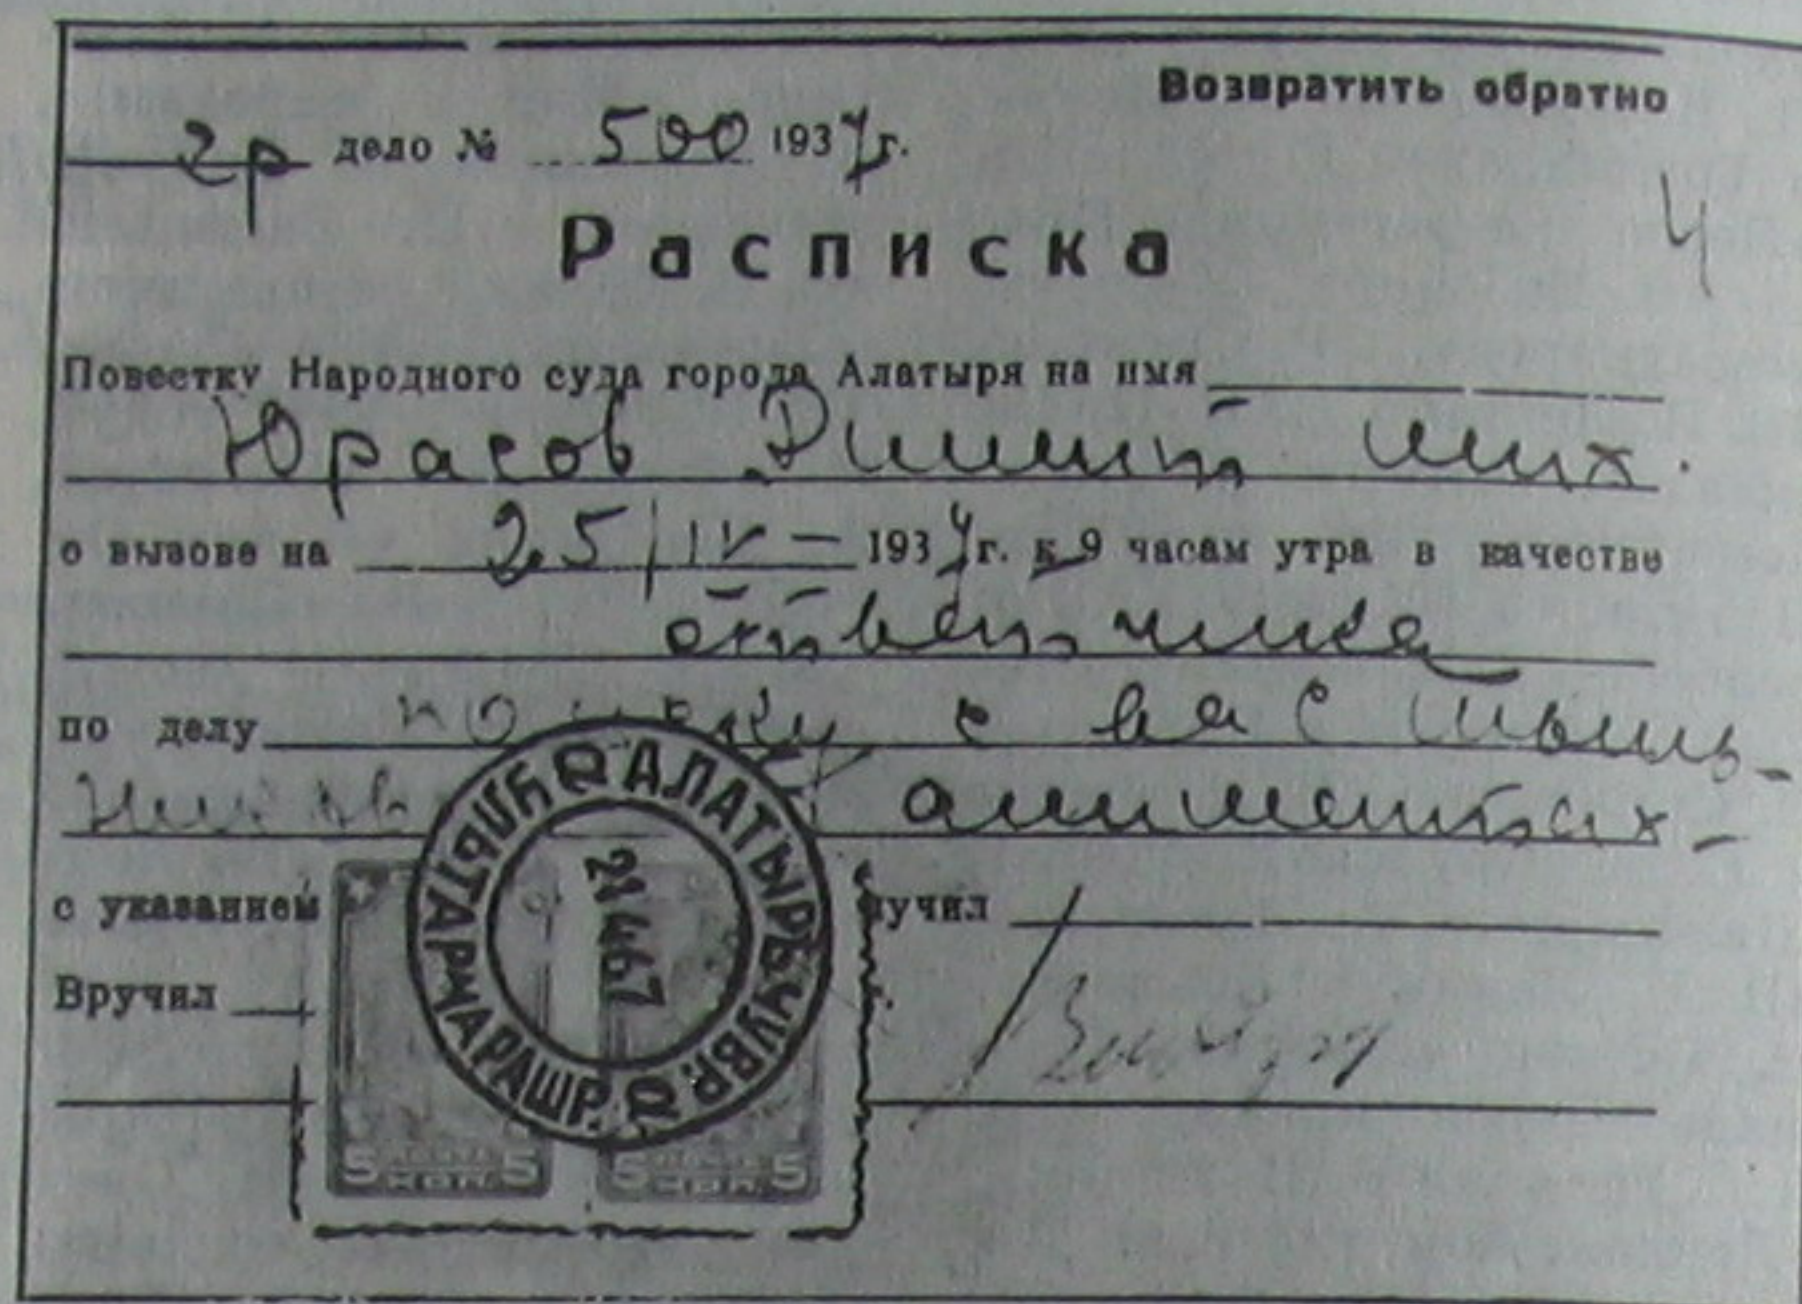 Возвратить обратно
гр дело № 500 1937г.
4
Расписка
Повестку Народного суда города Алатыря на имя
Юрасов Димит мих.
о вызове на 25/IV – 1937г. к 9 часам утра в качестве
ответчика
по делу по иску с вас
алиментах
с указанием учил
Вручил
АЛАТЫРЬ ЧУВР.
5 КОП. 5
5 КОП. 5